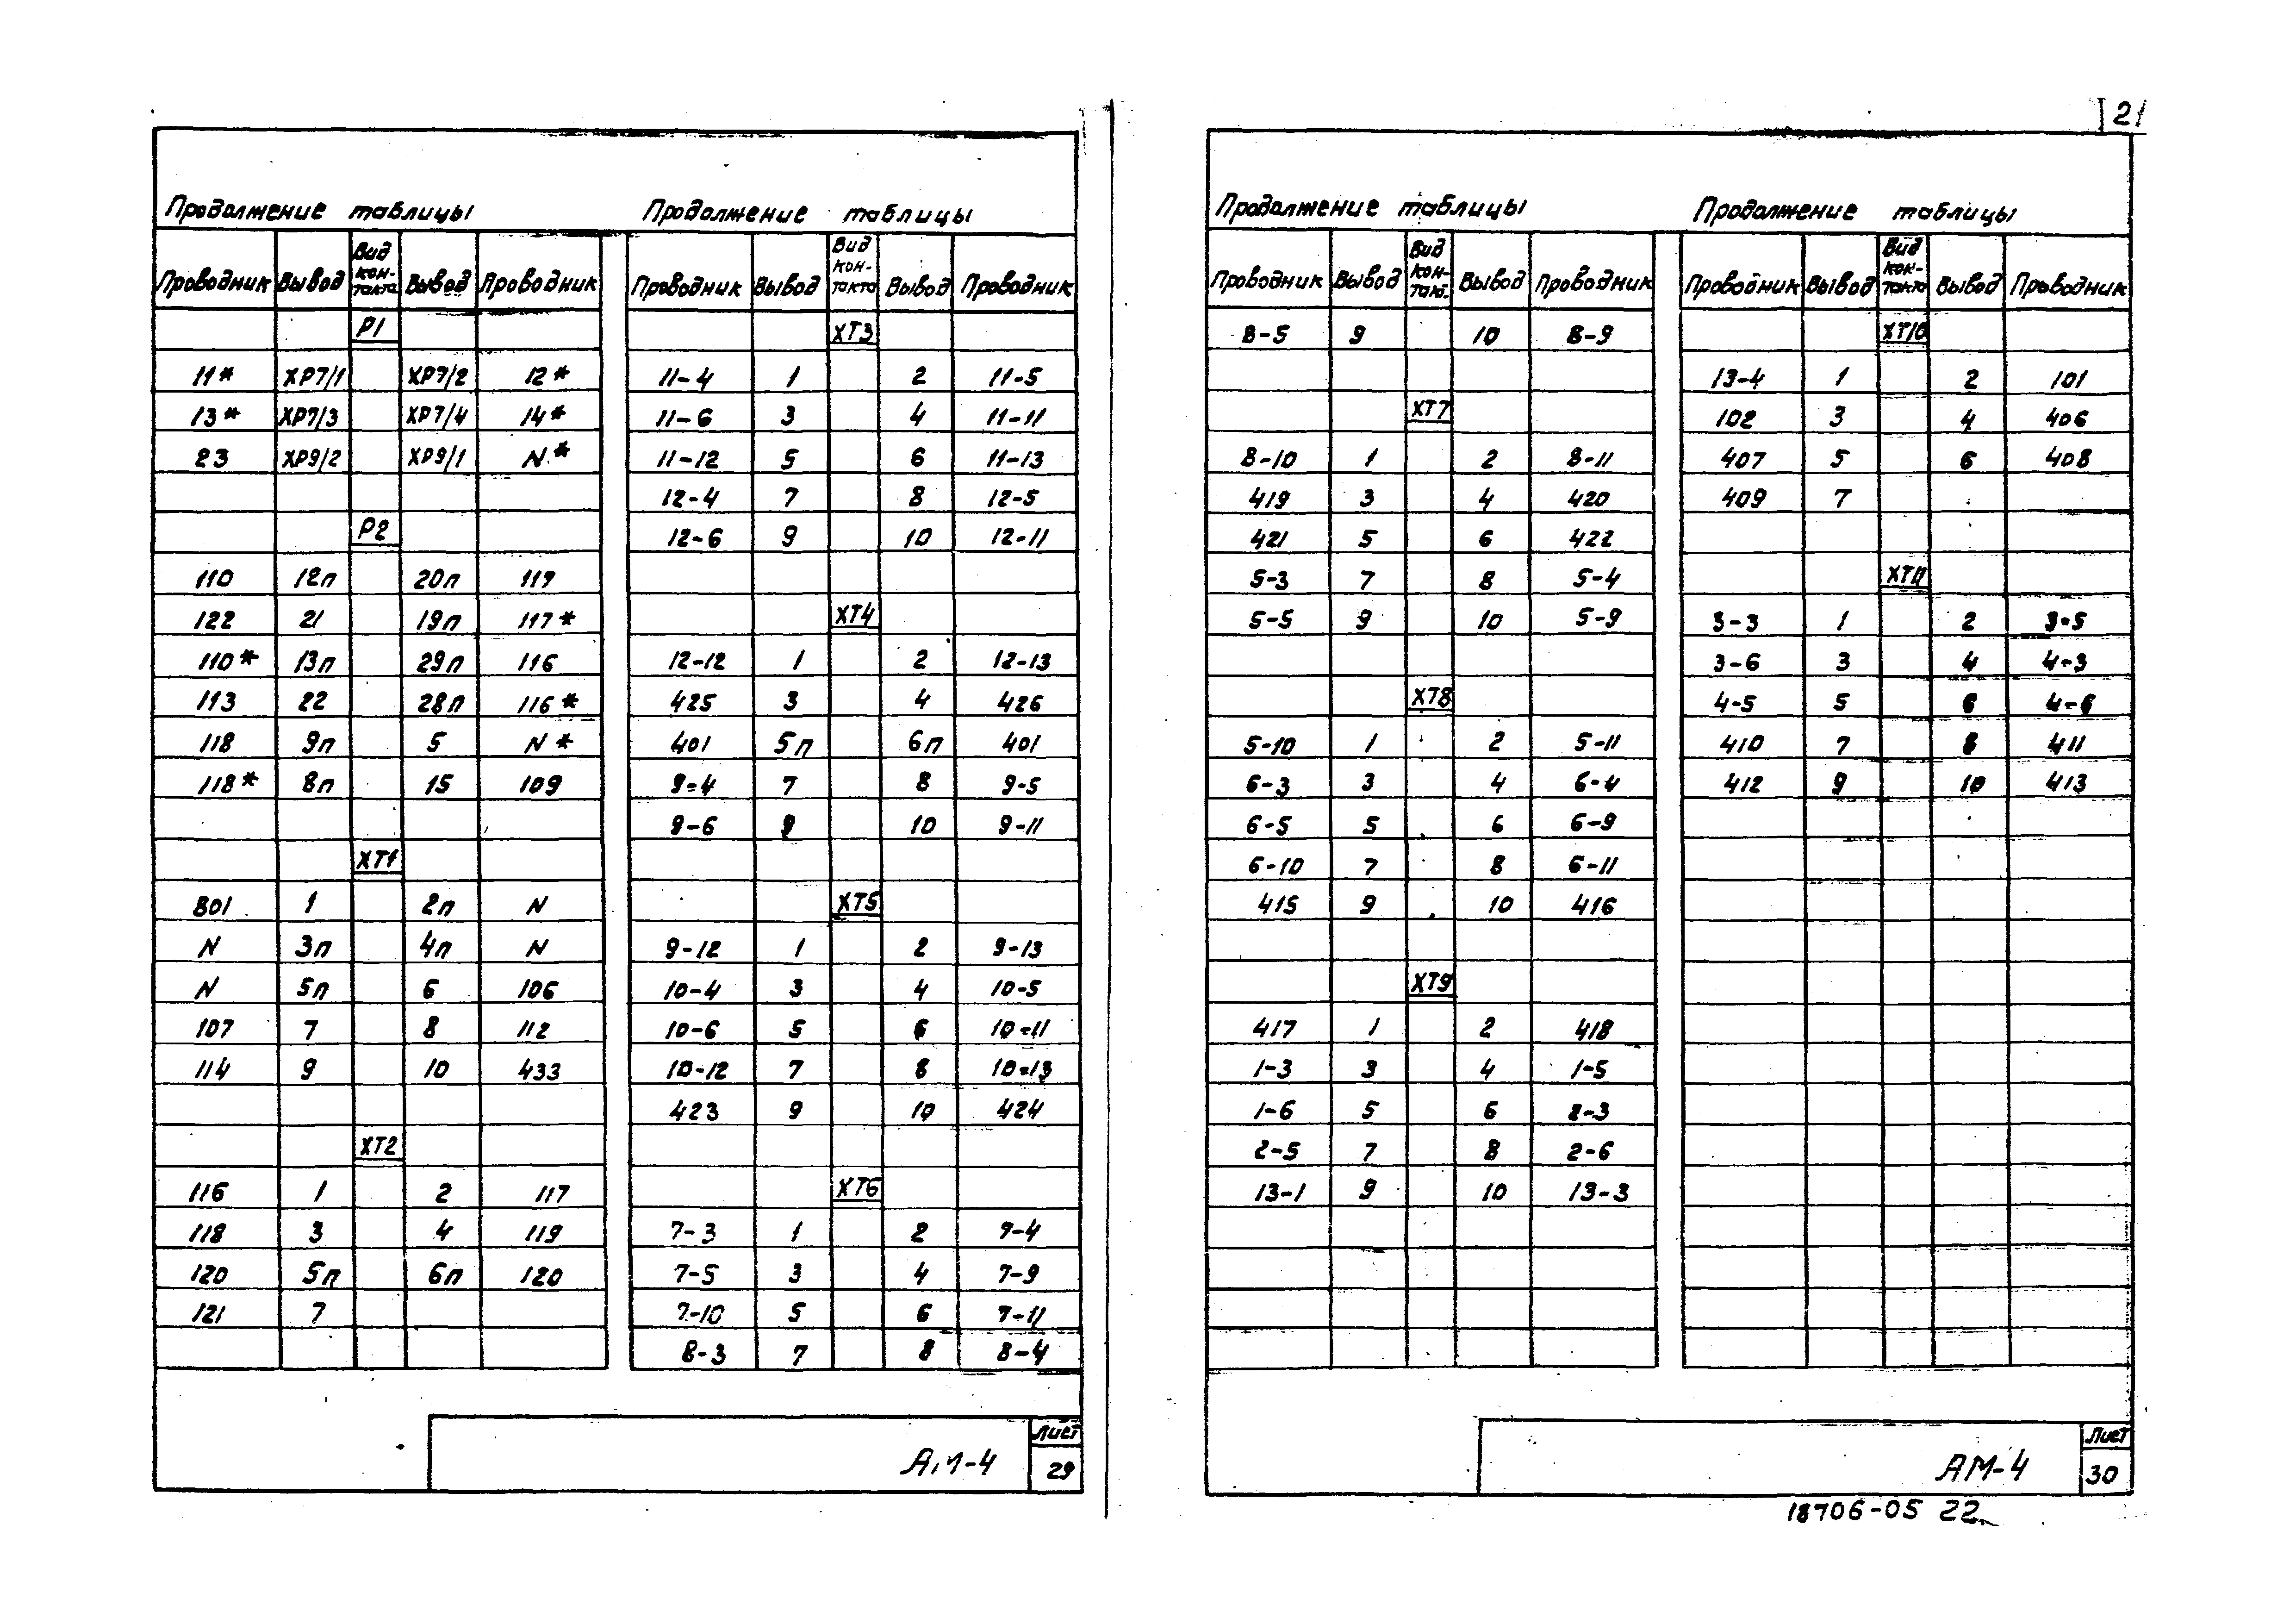 21
Продолжение таблицы
Проводник Вывод Вид кон-такта Вывод Проводник
P1
11* XP7/1 XP7/2 12*
13* XP7/3 XP7/4 14*
23 XP9/2 XP9/1 N*
P2
110 12п 20п 119
122 21 19п 117*
110* 13п 29п 116
113 22 28п 116*
118 9п 5 N*
118* 8п 15 109
XT1
801 1 2п N
N 3п 4п N
N 5п 6 106
107 7 8 112
114 9 10 433
XT2
116 1 2 117
118 3 4 119
120 5п 6п 120
121 7
Продолжение таблицы
Проводник Вывод Вид кон-такта Вывод Проводник
XT3
11-4 1 2 11-5
11-6 3 4 11-11
11-12 5 6 11-13
12-4 7 8 12-5
12-6 9 10 12-11
XT4
12-12 1 2 12-13
425 3 4 426
401 5п 6п 401
9-4 7 8 9-5
9-6 9 10 9-11
XT5
9-12 1 2 9-13
10-4 3 4 10-5
10-6 5 6 10-11
10-12 7 8 10-13
423 9 10 424
XT6
7-3 1 2 7-4
7-5 3 4 7-9
7-10 5 6 7-11
8-3 7 8 8-4
АМ-4
Лист
29
Продолжение таблицы
Проводник Вывод Вид кон-такт. Вывод Проводник
8-5 9 10 8-9
XT7
8-10 1 2 8-11
419 3 4 420
421 5 6 422
5-3 7 8 5-4
5-5 9 10 5-9
XT8
5-10 1 2 5-11
6-3 3 4 6-4
6-5 5 6 6-9
6-10 7 8 6-11
415 9 10 416
XT9
417 1 2 418
1-3 3 4 1-5
1-6 5 6 2-3
2-5 7 8 2-6
13-1 9 10 13-3
Продолжение таблицы
Проводник Вывод Вид кон-такта Вывод Проводник
XT10
13-4 1 2 101
102 3 4 406
407 5 6 408
409 7
XT11
3-3 1 2 3-5
3-6 3 4 4-3
4-5 5 6 4-6
410 7 8 411
412 9 10 413
АМ-4
Лист
30
18706-05 22